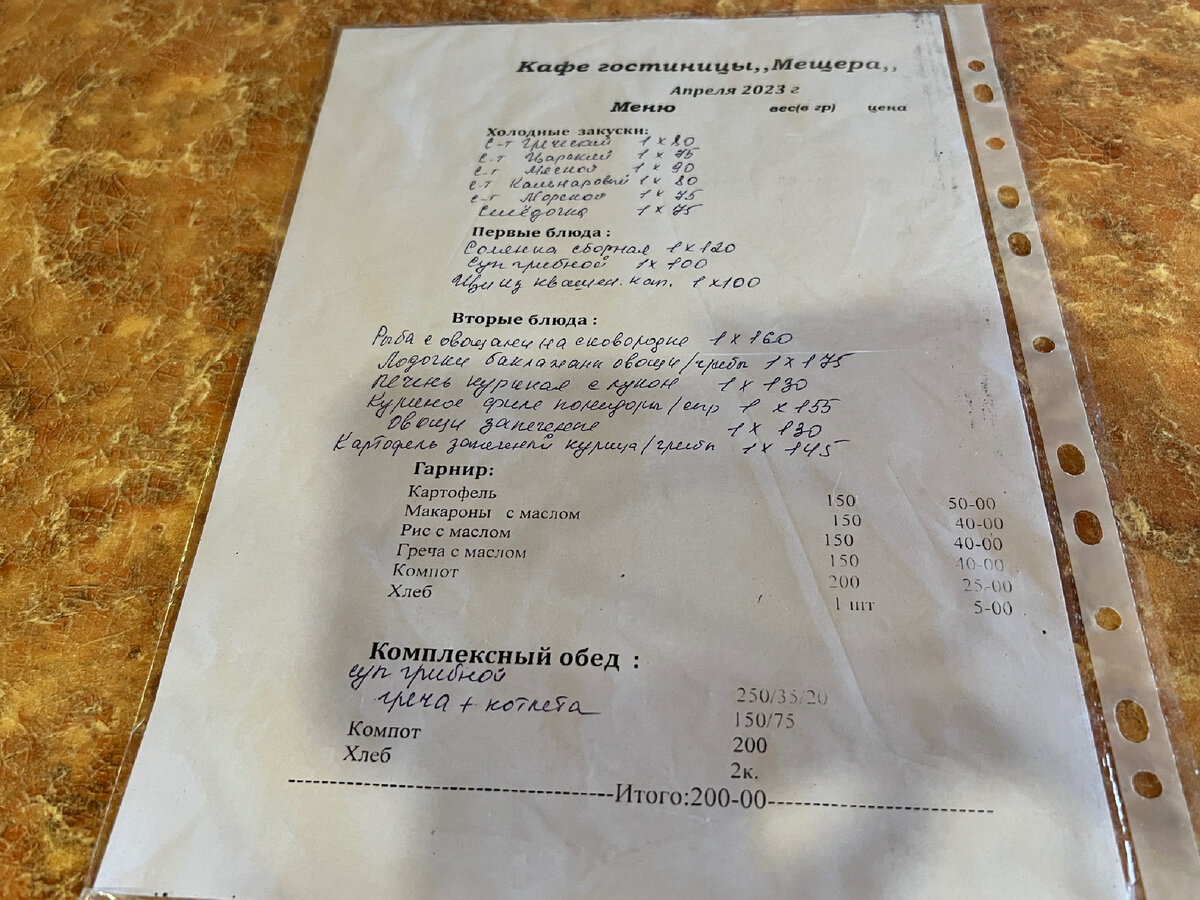 Кафе гостиницы,,Мещера,,
Апреля 2023 г
Меню вес(в гр) цена
Холодные закуски:
с-т Греческий 1 x 80
с-т Царский 1 x 75
с-т Мясной 1 x 90
с-т Кальмаровый 1 x 80
с-т Морской 1 x 75
Селёдочка 1 x 75
Первые блюда :
Солянка сборная 1 x 120
Суп грибной 1 x 100
Щи из квашен. кап. 1 x 100
Вторые блюда :
Рыба с овощами на сковородке 1 x 160
Лодочки баклажаны овощи/грибы 1 x 175
Печень куриная с луком 1 x 130
Куриное филе помидоры/сыр 1 x 155
Овощи запеченые 1 x 130
Картофель запеченый курица/грибы 1 x 145
Гарнир:
Картофель 150 50-00
Макароны с маслом 150 40-00
Рис с маслом 150 40-00
Греча с маслом 150 40-00
Компот 200 25-00
Хлеб 1 шт 5-00
Комплексный обед :
суп грибной 250/35/20
греча + котлета 150/75
Компот 200
Хлеб 2к.
------------------------------------Итого:200-00-------------------------